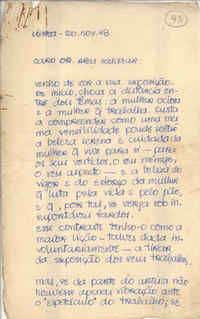 93
LISBOA - 20.NOV.48
CARO DR. ABEL SALAZAR:
VENHO DE VER A SUA EXPOSIÇÃO.
DE INÍCIO, CHOCA A DISTÂNCIA EN-
TRE DOIS TEMAS: A MULHER OCIOSA
E A MULHER Q TRABALHA. CUSTA
A COMPREENDER COMO UMA MES-
MA SENSIBILIDADE POUDE SENTIR
A BELEZA SERENA E CUIDADA DA
MULHER Q VIVE PARA SI - PARA
OS SEUS VESTIDOS, O SEU MENAGE,
O SEU ASPECTO - E A BELEZA DE
VIGOR E DO ESFORÇO DA MULHER
Q LUTA PELA VIDA E PELO PÃO,
E Q, POR TAL, SE VERGA SOB IN-
SUPORTÁVEIS FARDOS.
ESSE CONTRASTE TENHO-O COMO A
MAIOR LIÇÃO - TALVEZ DADA IN-
VOLUNTARIAMENTE - A TIRAR
DA EXPOSIÇÃO DOS SEUS TRABALHOS.
MAS, SE DA PARTE DO ARTISTA NÃO
HOUVESSE APENAS VIBRAÇÃO ANTE
O "ESPETÁCULO" DO TRABALHO; SE